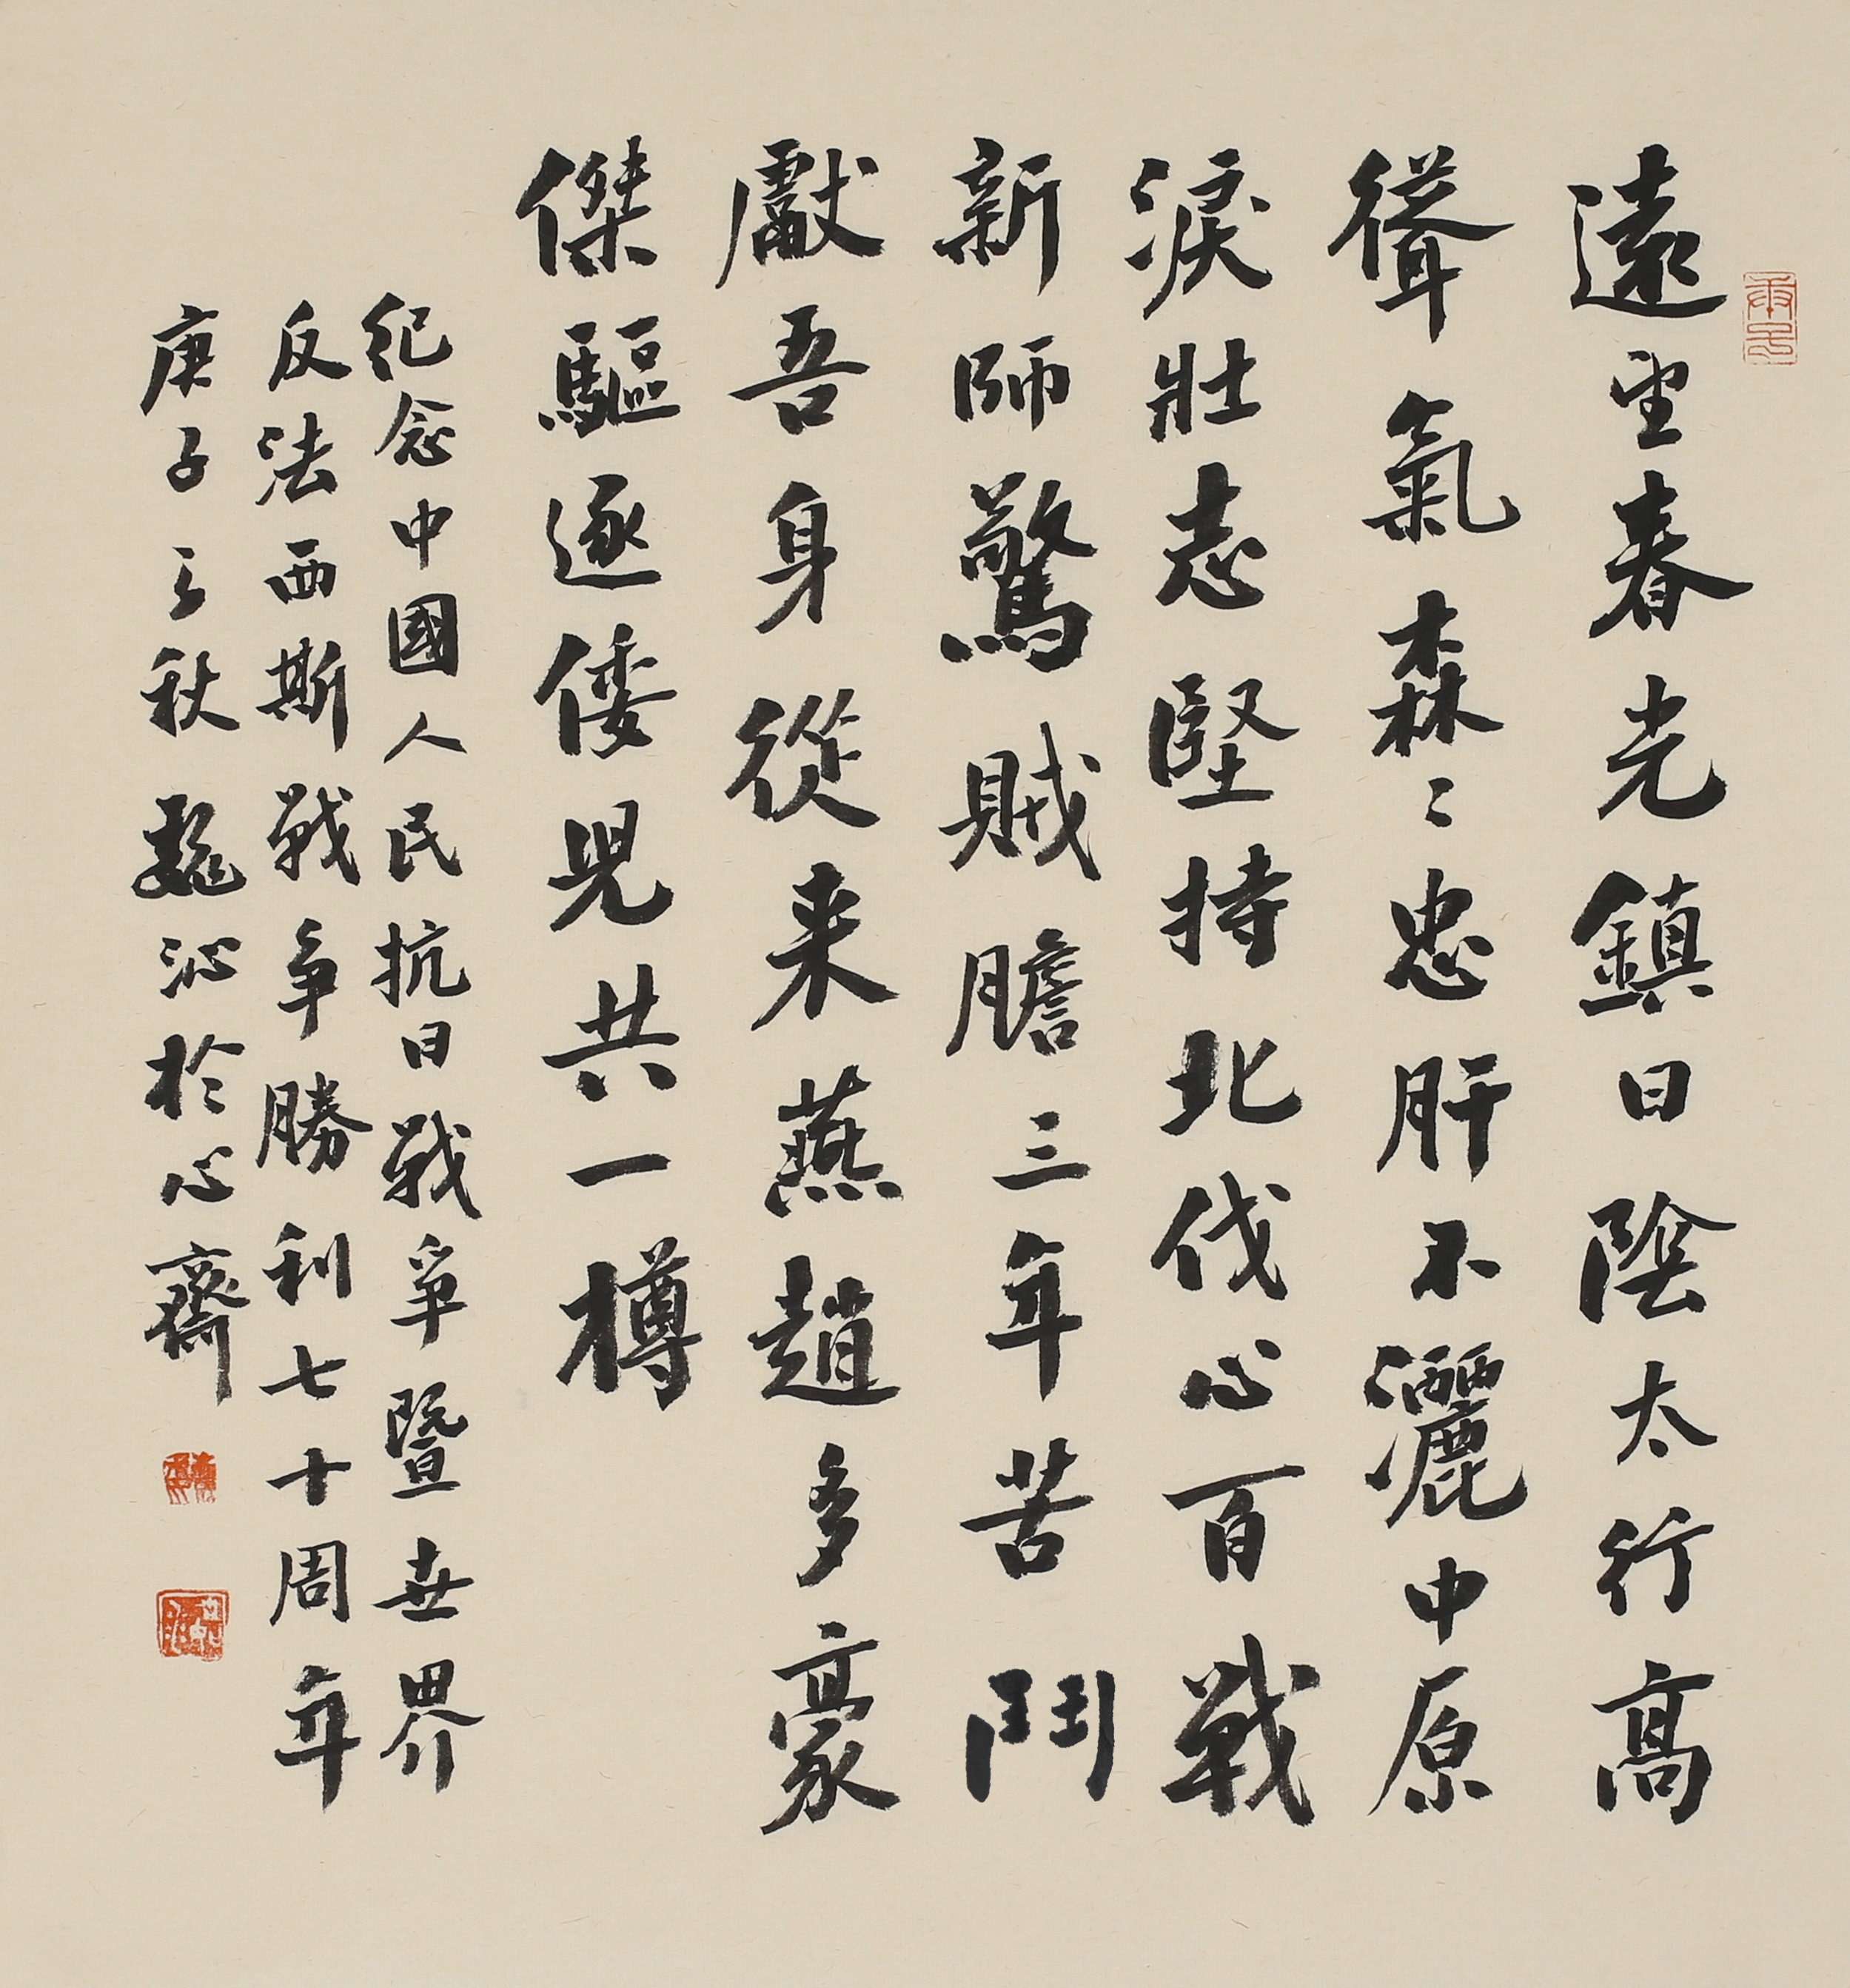 遠望春光鎮日陰太行高
聳氣森々忠肝不灑中原
淚壯志堅持北伐心百戰
新師驚賊膽三年苦鬥
獻吾身從来燕趙多豪
傑驅逐倭兒共一樽
紀念中國人民抗日戰爭暨世界
反法西斯戰争勝利七十周年
庚子之秋魏沁於心齋